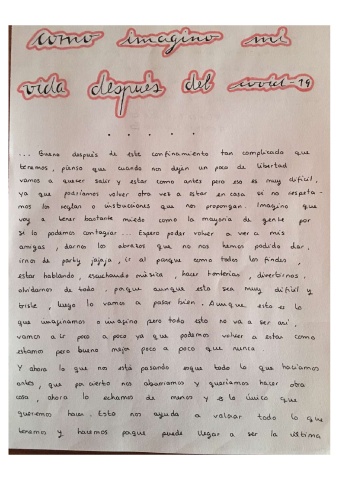 como imagino mi
vida después del covid-19
... Bueno después de este confinamiento tan complicado que
tenemos, pienso que cuando nos dejen un poco de libertad
vamos a querer salir y estar como antes pero eso es muy difícil,
ya que podríamos volver otra vez a estar en casa si no respeta-
mos las reglas o instrucciones que nos propongan. Imagino que
voy a tener bastante miedo como la mayoría de gente por
si lo podemos contagiar... Espero poder volver a ver a mis
amigas, darnos los abrazos que no nos hemos podido dar,
irnos de party jajaja, ir al parque como todos los findes,
estar hablando, escuchando música, hacer tonterías, divertirnos,
olvidarnos de todo, porque aunque esto sea muy difícil y
triste, luego lo vamos a pasar bien. Aunque esto es lo
que imaginamos o imagino pero todo esto no va a ser así,
vamos a ir poco a poco ya que podemos volver a estar como
estamos pero bueno mejor poco a poco que nunca
Y ahora lo que nos está pasando es que todo lo que hacíamos
antes, que por cierto nos aburríamos y queríamos hacer otra
cosa, ahora lo echamos de menos y es lo único que
queremos hacer. Esto nos ayuda a valorar todo lo que
tenemos y hacemos porque puede llegar a ser la última